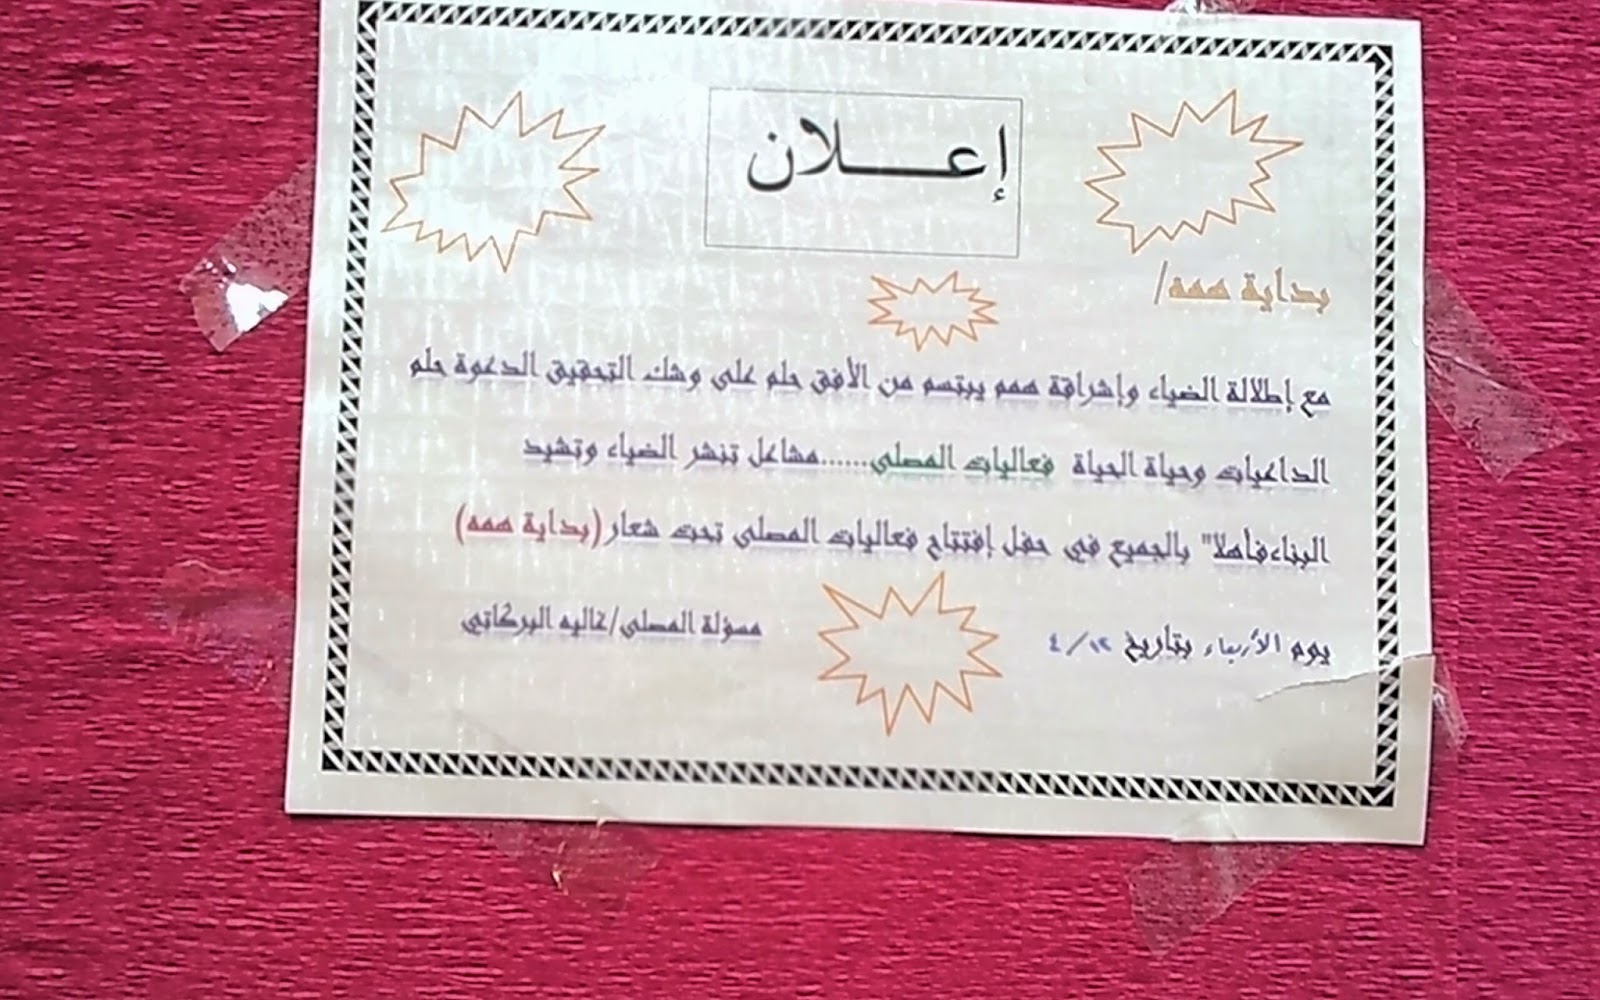 إعـــلان
بداية همه/
مع إطلالة الضياء وإشراقة همم يبتسم من الأفق حلم على وشك التحقيق الدعوة حلم
الداعيات وحياة الحياة فعاليات المصلى......مشاعل تنشر الضياء وتشيد
البناء،فأهلا" بالجميع في حفل إفتتاح فعاليات المصلى تحت شعار (بداية همه)
يوم الأربعاء بتاريخ ١٢/ ٤
مسؤلة المصلى/غاليه البركاتي